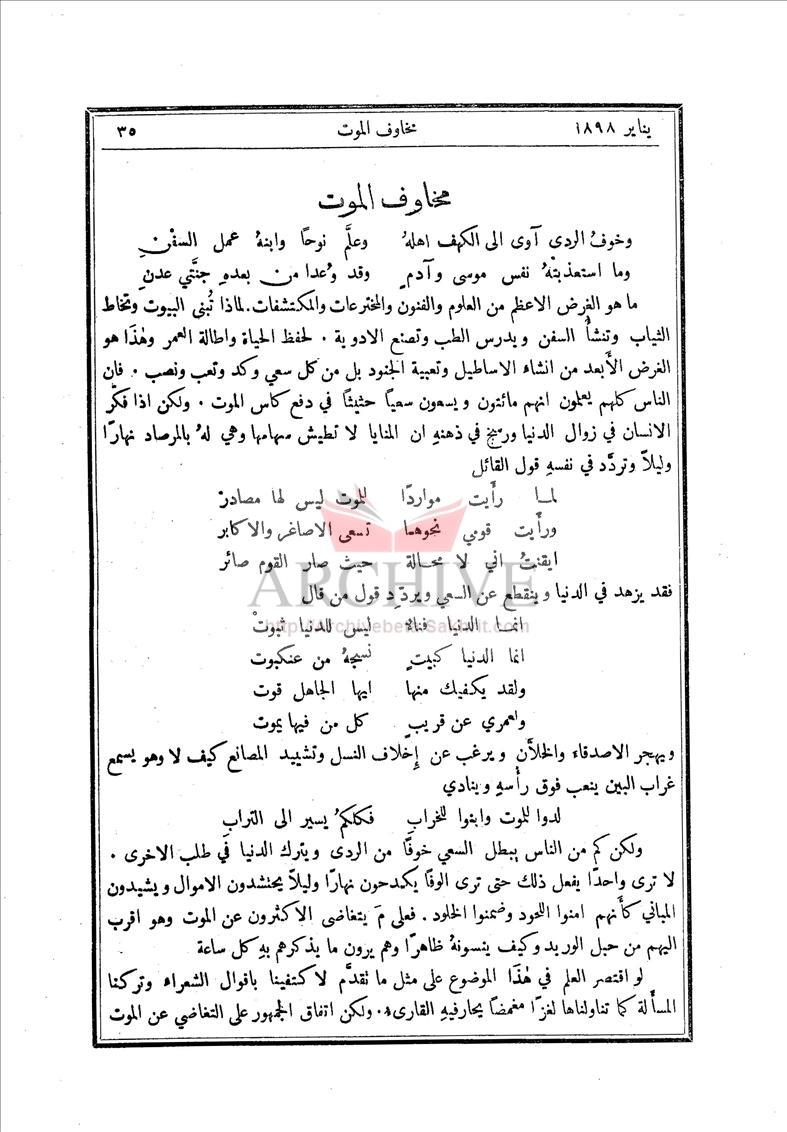 يناير ١٨٩٨ مخاوف الموت ٣٥
مخاوف الموت
وخوفُ الردى آوى الى الكهف اهلهُ وعلَّم نوحًا وابنهُ عمل السفْنِ
وما استعذبتْهُ نفس موسى وآدمٍ وقد وُعدا من بعدهِ جنَّتي عدنِ
ما هو الغرض الاعظم من العلوم والفنون والمخترعات والمكتشفات. لماذا تُبنى البيوت وتخاط
الثياب وتنشأُ السفن ويدرس الطب وتصنع الادوية . لحفظ الحياة واطالة العمر وهٰذا هو
الغرض الأَبعد من انشاء الاساطيل وتعبية الجنود بل من كل سعي وكد وتعب ونصب . فان
الناس كلهم يعلمون انهم مائتون ويسعون سعيًا حثيثًا في دفع كاس الموت . ولكن اذا فكَّر
الانسان في زوال الدنيا ورسخ في ذهنهِ ان المنايا لا تطيش سهامها وهي لهُ بالمرصاد نهارًا
وليلاً وتردَّد في نفسهِ قول القائل
لما رأَيت مواردًا للموت ليس لها مصادرْ
ورأَيت قومي نحوها تسعى الاصاغر والاكابر
ايقنتُ اني لا محالة حيث صار القوم صائر
فقد يزهد في الدنيا وينقطع عن السعي ويردّد قول من قال
انما الدنيا فناءٌ ليس للدنيا ثبوتْ
انما الدنيا كبيتٍ نسجهُ من عنكبوت
ولقد يكفيك منها ايها الجاهل قوت
ولعمري عن قريبٍ كل من فيها يموت
ويهجر الاصدقاء والخلاَّن ويرغب عن إِخلاف النسل وتشييد المصانع كيف لا وهو يسمع
غراب البين ينعب فوق رأْسهِ وينادي
لدوا للموت وابنوا للخرابِ فكلكمُ يسير الى الترابِ
ولكن كم من الناس يبطل السعي خوفًا من الردى ويترك الدنيا في طلب الاخرى .
لا ترى واحدًا يفعل ذلك حتى ترى الوفًا يكدحون نهارًا وليلاً يحتشدون الاموال ويشيدون
المباني كأَنهم امنوا اللحود وضمنوا الخلود . فعلى مَ يتغاضى الاكثرون عن الموت وهو اقرب
اليهم من حبل الوريد وكيف ينسونهُ ظاهرًا وهم يرون ما يذكرهم بهِ كل ساعة
لو اقتصر العلم في هٰذا الموضوع على مثل ما تقدَّم لاكتفينا باقوال الشعراء وتركنا
المسأَلة كما تناولناها لغزًا مغمضًا يحار فيهِ القارىء. ولكن اتفاق الجمهور على التغاضي عن الموت
ARCHIVE